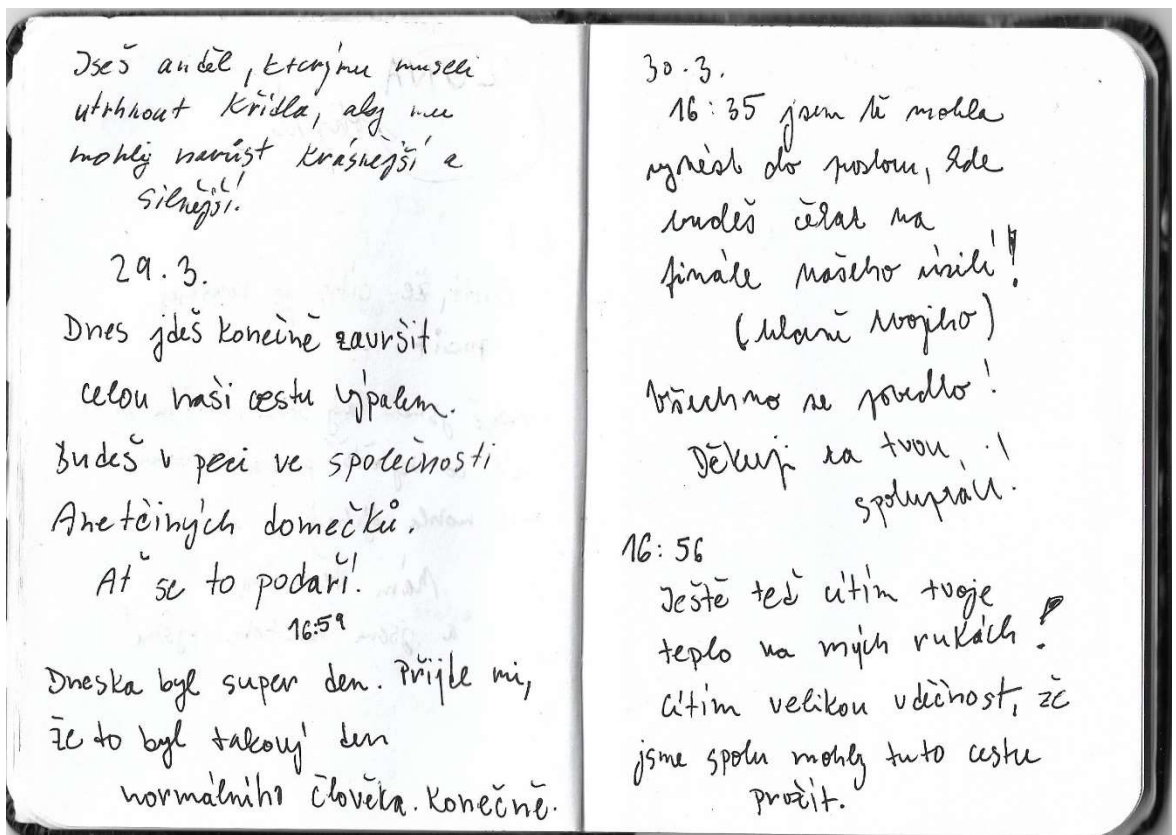 Jseš anděl, kterýmu museli
utrhnout křídla, aby mu
mohly narůst krásnější a
silnější!
29.3.
Dnes jdeš konečně završit
celou naši cestu výpalem.
Budeš v peci ve společnosti
Anetčiných domečků.
Ať se to podaří!
16:59
Dneska byl super den. Přijde mi,
že to byl takový den
normálního člověka. Konečně.
30.3.
16:35 jsem tě mohla
vynést do prostoru, kde
budeš čekat na
finále našeho úsilí!
(hlavně tvojího)
Všechno se povedlo!
Děkuji za tvou
spolupráci!
16:56
Ještě teď cítím tvoje
teplo na mých rukách!
Cítím velikou vděčnost, že
jsme spolu mohly tuto cestu
prožít.